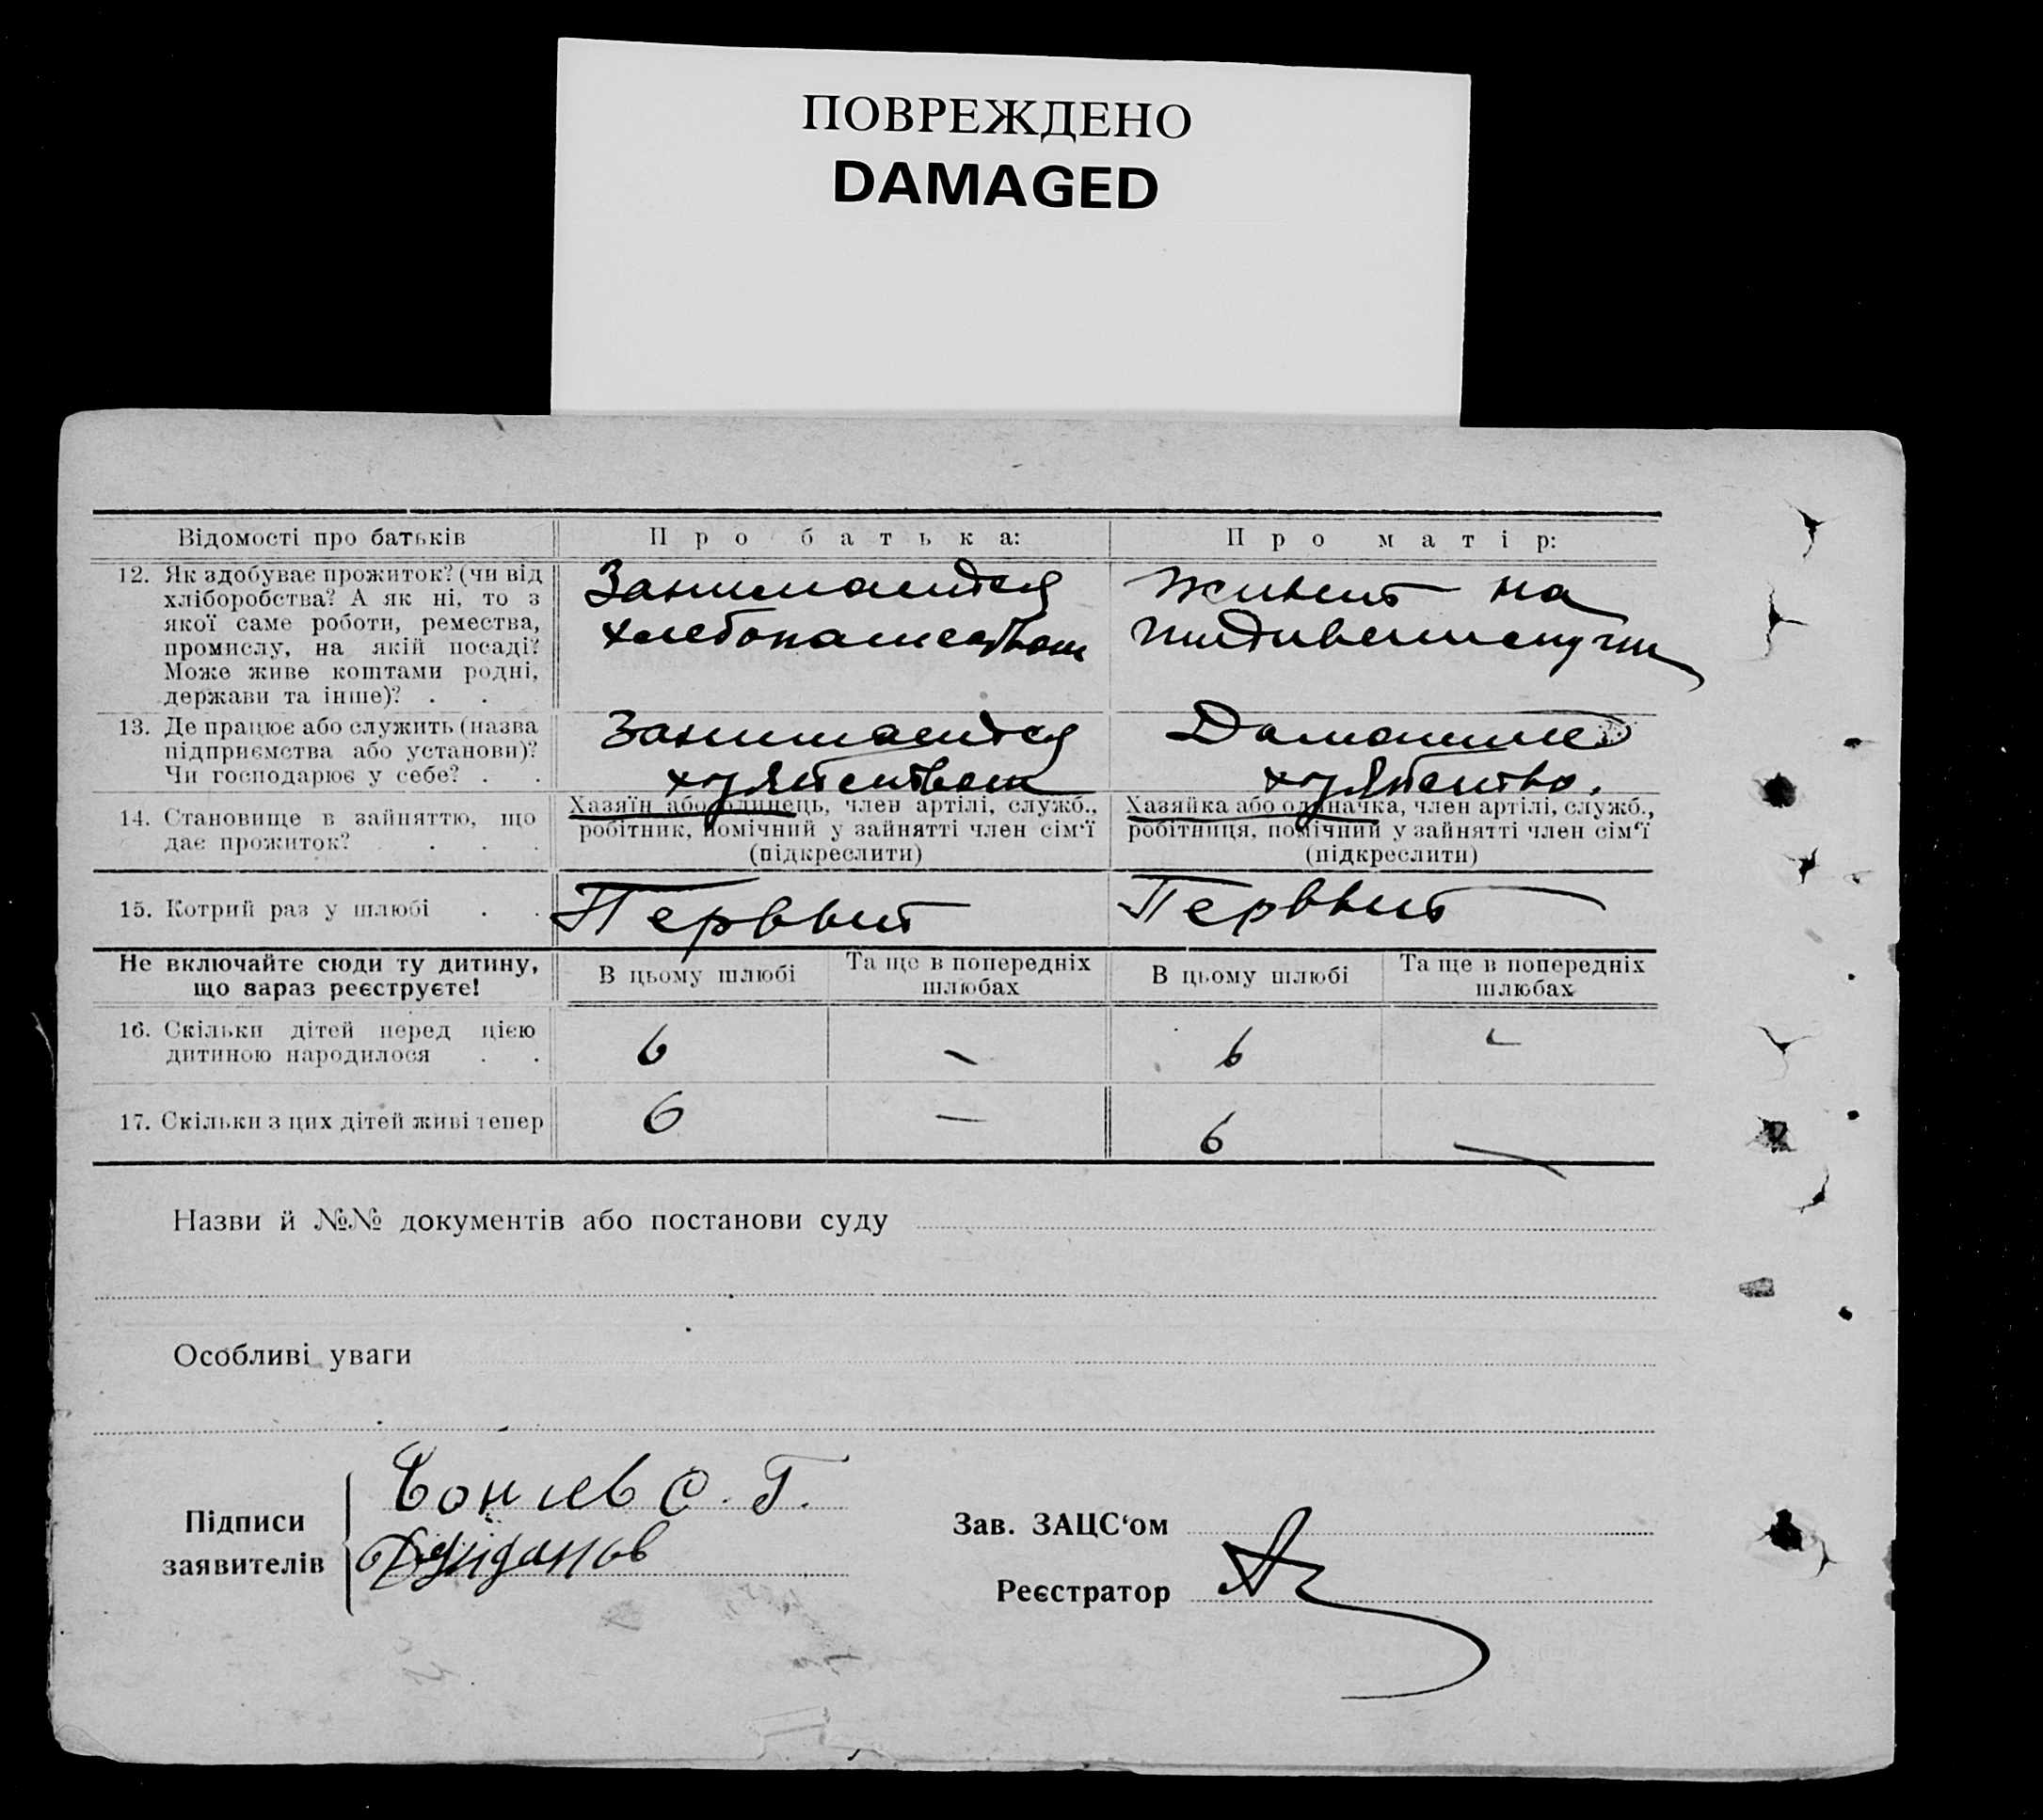 ПОВРЕЖДЕНО
DAMAGED
Відомості про батьків
Про батька:
Про матір:
12. Як здобуває прожиток? (чи від
хліборобства? А як ні, то з
якої саме роботи, ремества,
промислу, на якій посаді?
Може живе коштами родні,
держави та інше)? . .
Занимаится
хлебопашеством
живит на
иждивении
13. Де працює або служить (назва
підприємства або установи)?
Чи господарює у себе? . .
Занимаится
хузяйством
Домашние
хузяйство.
14. Становище в зайняттю, що
дає прожиток? . . .
Хазяїн або одинець, член артілі, служб.,
робітник, помічний у зайнятті член сім'ї
(підкреслити)
Хазяйка або одиначка, член артілі, служб.,
робітниця, помічний у зайнятті член сім'ї
(підкреслити)
15. Котрий раз у шлюбі . .
Первый
Первый
Не включайте сюди ту дитину,
що зараз реєструєте!
В цьому шлюбі
Та ще в попередніх
шлюбах
В цьому шлюбі
Та ще в попередніх
шлюбах
16. Скільки дітей перед цією
дитиною народилося . .
6 — 6 —
17. Скільки з цих дітей живі тепер
6 — 6 —
Назви й №№ документів або постанови суду
Особливі уваги
Підписи
заявителів
С. Г.
Зав. ЗАЦС'ом
Реєстратор